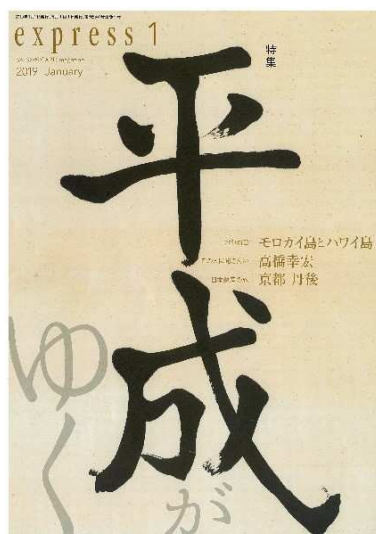 express 1
2019 January
特集
平成
が
ゆく
モロカイ島とハワイ島
高橋幸宏
京都 丹後